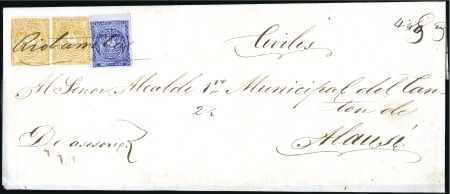 Riobamba
Civiles
Al Señor Alcalde 1ro Municipal del Can-
ton de
2½
De asesoria
Alausí